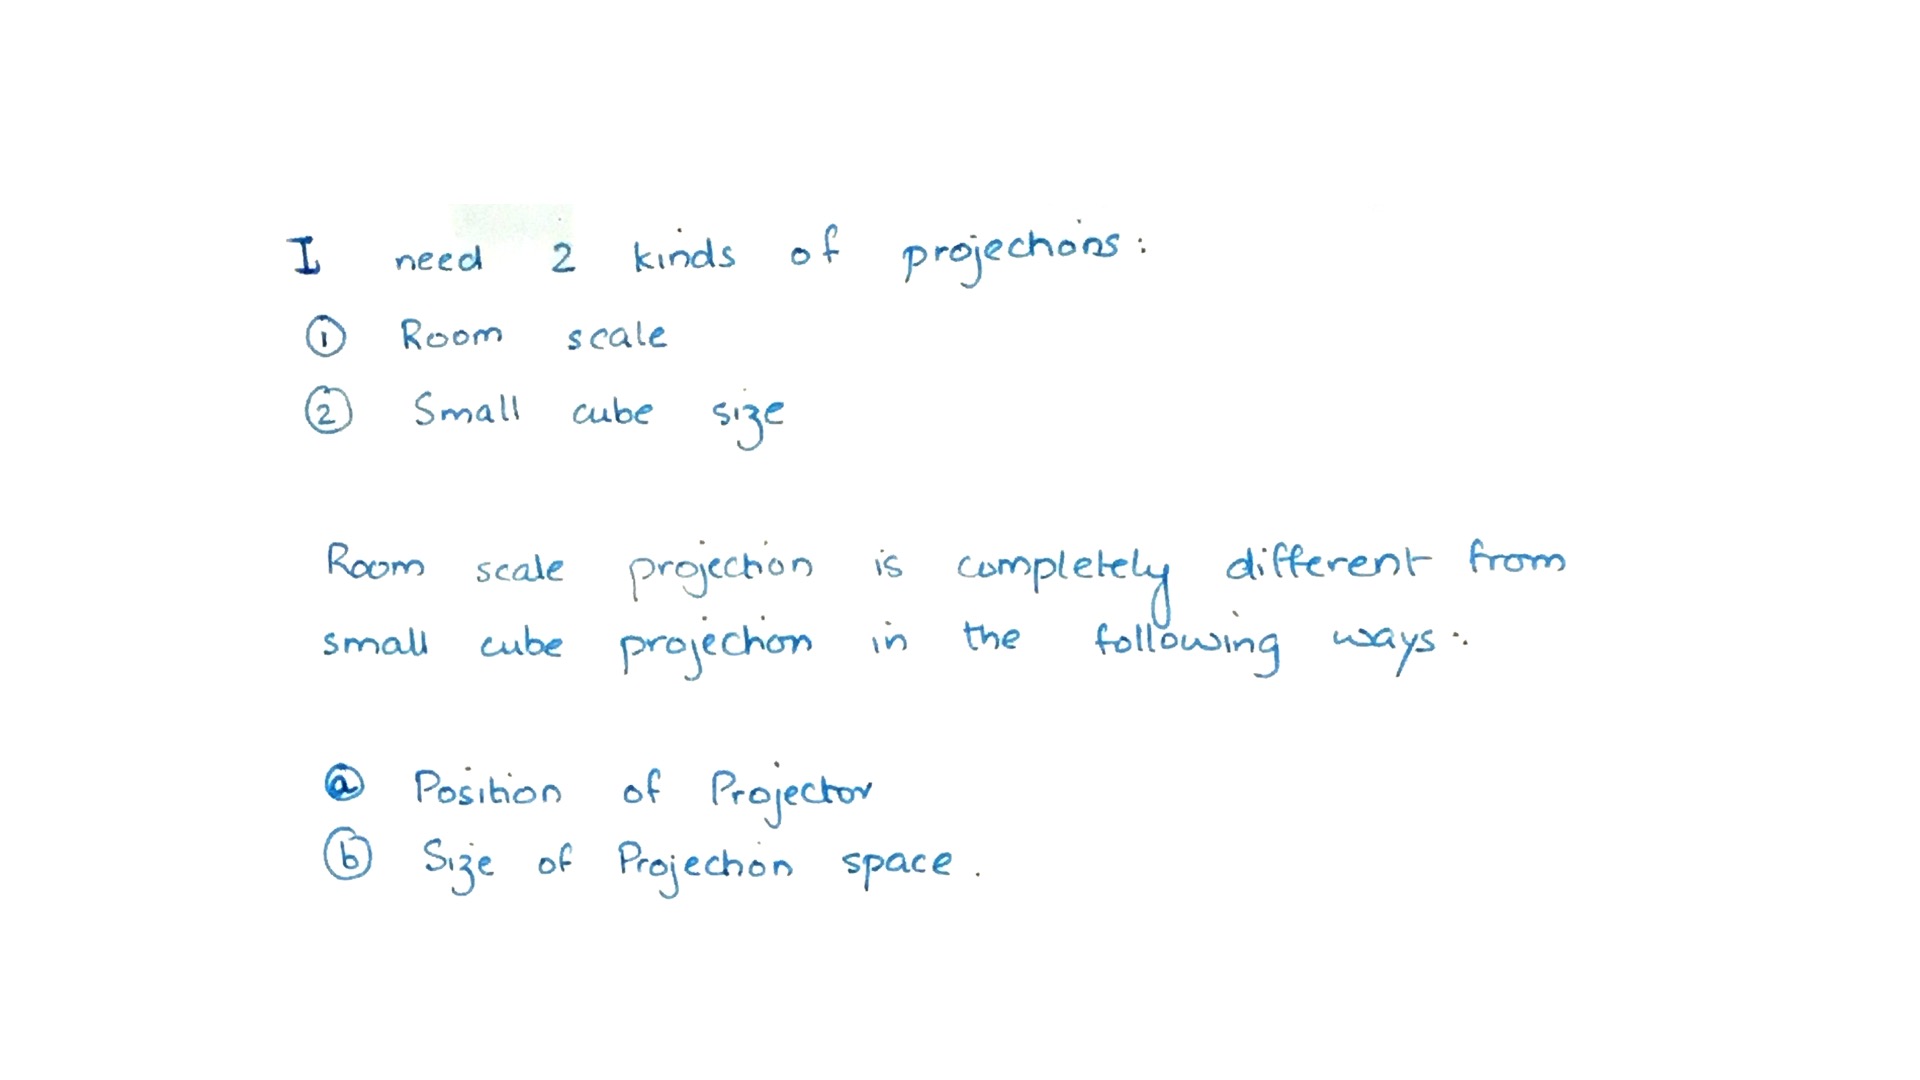 I need 2 kinds of projections:
① Room scale
② Small cube size
Room scale projection is completely different from
small cube projection in the following ways:
ⓐ Position of Projector
ⓑ Size of Projection space.